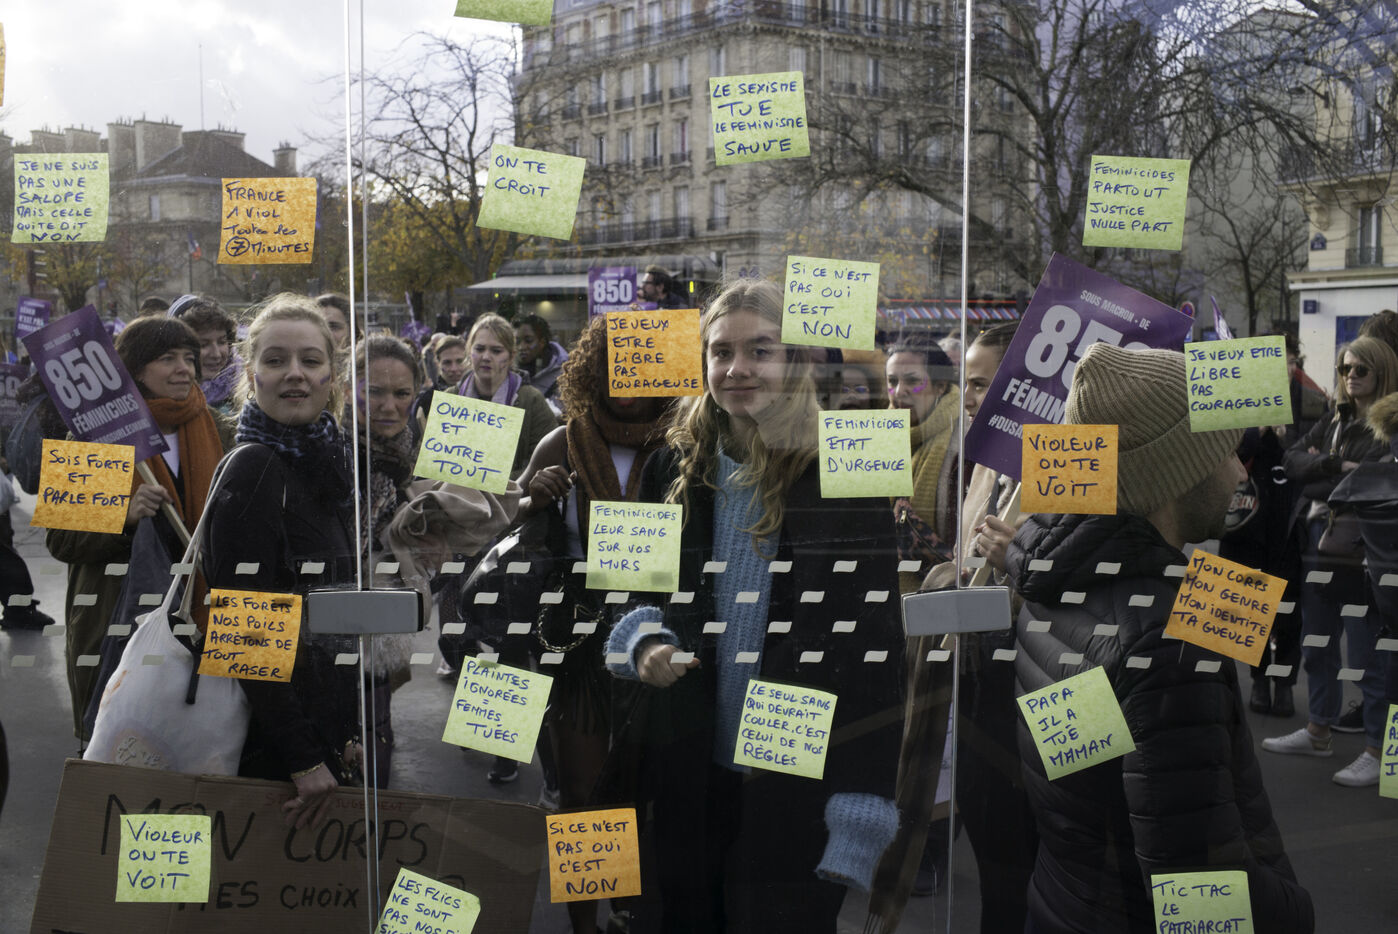 LE SEXISME
TUE
LE FEMINISME
SAUVE
JE NE SUIS
PAS UNE
SALOPE
MAIS CELLE
QUI TE DIT
NON
FRANCE
1 VIOL
Toutes les
7 MINUTES
ON TE
CROIT
FEMINICIDES
PARTOUT
JUSTICE
NULLE PART
SI CE N'EST
PAS OUI
C'EST
NON
850
SOUS MACRON - DE
850
FÉMIN
850
FÉMINICIDES
JE VEUX
ETRE
LIBRE
PAS
COURAGEUSE
JE VEUX ETRE
LIBRE
PAS
COURAGEUSE
OVAIRES
ET
CONTRE
TOUT
FEMINICIDES
ETAT
D'URGENCE
VIOLEUR
ON TE
VOIT
SOIS FORTE
ET
PARLE FORT
FEMINICIDES
LEUR SANG
SUR VOS
MURS
MON CORPS
MON GENRE
MON IDENTITÉ
TA GUEULE
LES FORÊTS
NOS POILS
ARRÊTONS DE
TOUT
RASER
PLAINTES
IGNORÉES
=
FEMMES
TUÉES
LE SEUL SANG
QUI DEVRAIT
COULER, C'EST
CELUI DE NOS
RÈGLES
PAPA
IL A
TUÉ
MAMAN
MON CORPS
MES CHOIX
VIOLEUR
ON TE
VOIT
SI CE N'EST
PAS OUI
C'EST
NON
LES FLICS
NE SONT
PAS NOS
TIC TAC
LE
PATRIARCAT